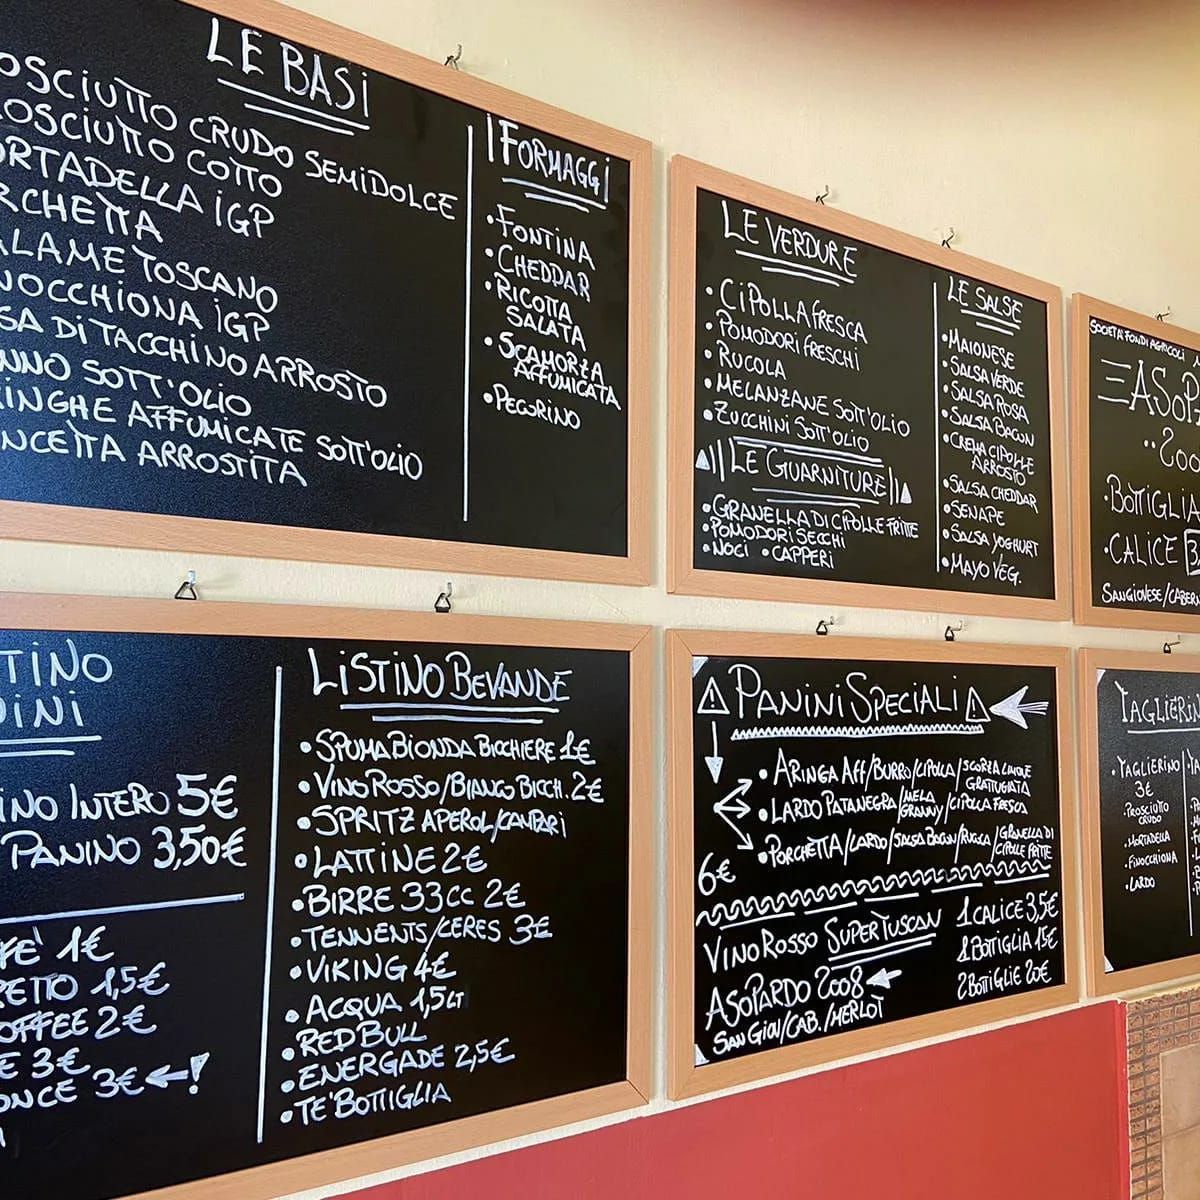 LE BASI
OSCIUTTO CRUDO SEMIDOLCE
OSCIUTTO COTTO
ORTADELLA IGP
RCHETTA
ALAME TOSCANO
NOCCHIONA IGP
SA DI TACCHINO ARROSTO
NNO SOTT'OLIO
INGHE AFFUMICATE SOTT'OLIO
NCETTA ARROSTITA
I FORMAGGI
•FONTINA
•CHEDDAR
•RICOTTA
SALATA
•SCAMORZA
AFFUMICATA
•PECORINO
LE VERDURE
•CIPOLLA FRESCA
•POMODORI FRESCHI
•RUCOLA
•MELANZANE SOTT'OLIO
•ZUCCHINI SOTT'OLIO
LE GUARNITURE
•GRANELLA DI CIPOLLE FRITTE
•POMODORI SECCHI
•NOCI •CAPPERI
LE SALSE
•MAIONESE
•SALSA VERDE
•SALSA ROSA
•SALSA BACON
•CREMA CIPOLLE
ARROSTO
•SALSA CHEDDAR
•SENAPE
•SALSA YOGHURT
•MAYO VEG.
SOCIETÀ FONDI AGRICOLI
ASOPA
200
•BOTTIGLIA
•CALICE 3
SANGIOVESE/CABERN
TINO
INI
INO INTERO 5€
PANINO 3,50€
FE' 1€
ETTO 1,5€
OFFEE 2€
E 3€
ONCE 3€ !
LISTINO BEVANDE
•SPUMA BIONDA BICCHIERE 1€
•VINO ROSSO/BIANCO BICCH. 2€
•SPRITZ APEROL/CAMPARI
•LATTINE 2€
•BIRRE 33CC 2€
•TENNENTS/CERES 3€
•VIKING 4€
•ACQUA 1,5LT
•RED BULL
•ENERGADE 2,5€
•TE' BOTTIGLIA
PANINI SPECIALI
•ARINGA AFF/BURRO/CIPOLLA/SCORZA LIMONE
GRATTUGIATA
•LARDO PATANEGRA/MELA
GRANNY/CIPOLLA FRESCA
•PORCHETTA/LARDO/SALSA BACON/RUCOLA/GRANELLA DI
CIPOLLE FRITTE
6€
VINO ROSSO SUPERTUSCAN
ASOPARDO 2008
SANGIOV/CAB./MERLOT
1 CALICE 3,5€
1 BOTTIGLIA 15€
2 BOTTIGLIE 20€
TAGLIERIN
•TAGLIERINO
3€
•PROSCIUTTO
CRUDO
•MORTADELLA
•FINOCCHIONA
•LARDO